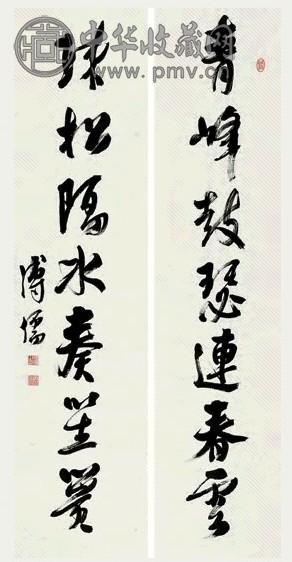 中华收藏网
www.pmv.cn
青峰鼓瑟連春雲
疎松隔水奏笙簧
溥儒